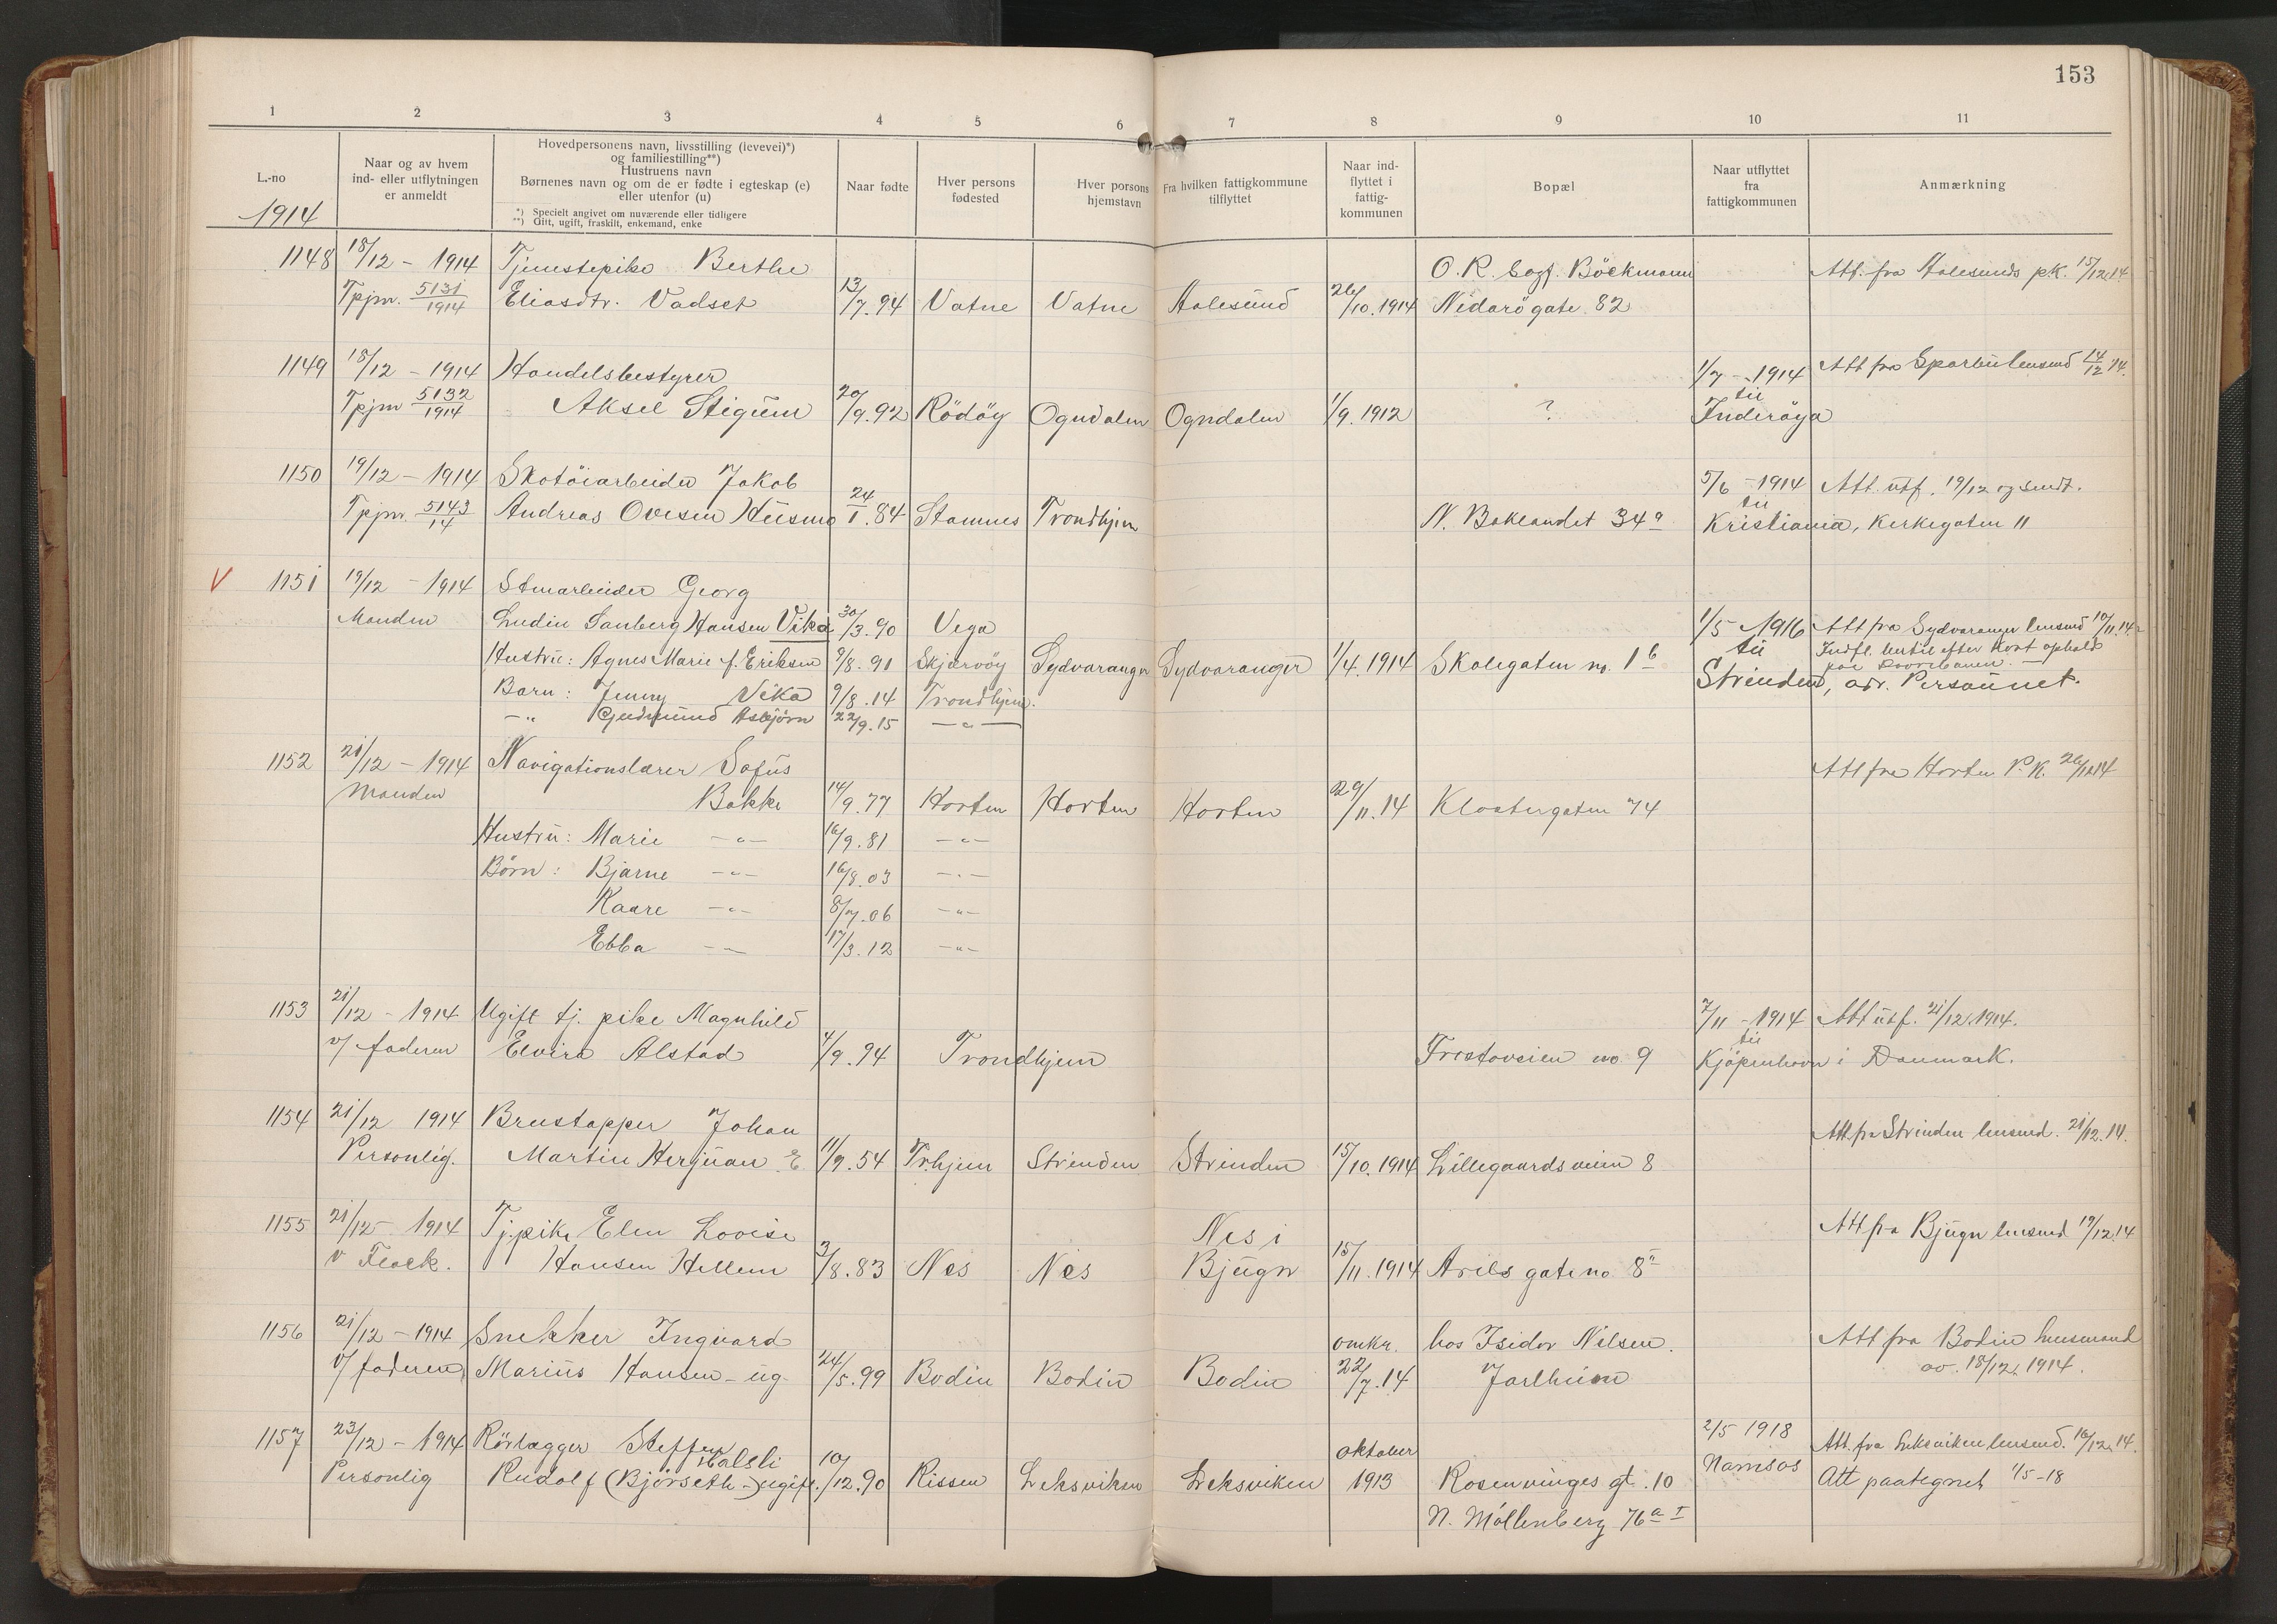 153
1 2 3 4 5 6 7 8 9 10 11
L.-no
1914
Naar og av hvem
ind- eller utflytningen
er anmeldt
Hovedpersonens navn, livsstilling (levevei)*)
og familiestilling**)
Hustruens navn
Børnenes navn og om de er fødte i egteskap (e)
eller utenfor (u)
*) Specielt angivet om nuværende eller tidligere
**) Gift, ugift, fraskilt, enkemand, enke
Naar fødte
Hver persons
fødested
Hver porsons
hjemstavn
Fra hvilken fattigkommune
tilflyttet
Naar ind-
flyttet i
fattig-
kommunen
Bopæl
Naar utflyttet
fra
fattigkommunen
Anmærkning
1148 18/12 - 1914 Tjenestepike Berthe O. R. sagf. Böckmann Att. fra Aalesunds p.k. 15/12.14.
Tpjm. 5131/1914 Eliasdtr. Vadset 13/7.94 Vatne Vatne Aalesund 26/10.1914 Nidarögate 82
1149 18/12 - 1914 Handelsbestyrer 1/7 - 1914 Att fra Sparbu lensmd 14/12 14.
Tpjm 5132/1914 Aksel Stigum 20/9.92 Rödöy Ogndalen Ogndalen 1/9.1912 ? til Inderöya
1150 19/12 - 1914 Skotöiarbeider Jakob 5/6 - 1914 Att. utf. 19/12 og sendt.
Tpjm. 5143/14 Andreas Ovesen Husmo 24/1.84 Stamnes Trondhjem N. Baklandet 34a til Kristiania, Kirkegaten 11
V 1151 19/12 - 1914 Stenarbeider Georg
Manden Ludin Sanberg Hansen Vika 30/3.90 Vega 1/5 1916 Att fra Sydvaranger lensmd 10/11.14.
Hustru: Agnes Marie f. Eriksen 9/8.91 Skjærvöy Sydvaranger Sydvaranger 1/4.1914 Skolegaten no. 1b til Indfl. hertil efter kort ophold
paa Dovrebanen.
Barn: Jenny Vika 9/8.14 Trondhjem. Strinden, adr. Persaunet.
-"- Gudmund Asbjörn 22/9.15 -"-
1152 21/12 - 1914 Navigationslærer Sofus Att fra Horten P.K. 26/12 14
Manden Bakke 14/9.77 Horten Horten Horten 29/11.14 Klostergaten 74
Hustru: Marie -"- 16/9.81 -"-
Börn: Bjarne -"- 16/8.03 -"-
Kaare -"- 8/7.06 -"-
Ebba -"- 17/3.12 -"-
1153 21/12 - 1914 Ugift tj. pike Magnhild 7/11 - 1914 Att utf. 21/12.1914.
v/ faderen Elvira Alstad 4/9.94 Trondhjem no 9 til Kjöpenhavn i Danmark.
1154 21/12 1914 Brustapper Johan Att fra Strinden lensmd. 21/12.14.
Personlig. Martin Herjuan E 11/9.54 Tr.hjem Strinden Strinden 15/10.1914 Lillegaardsveien 8
1155 21/12 - 1914 Tj.pike Elen Lovise Nes i Att fra Bjugn lensmd 19/12.14
v Flock. Hansen Hellem 3/8.83 Nes Nes Bjugn 15/11.1914 Arilds gate no 8
1156 21/12 - 1914 Snekker Ingvard omkr. hos Isidor Nilsen. Att fra Bodin lensmand
v/ faderen Marius Hansen - ug. 24/5.99 Bodin Bodin Bodin 22/7.14 Jarlheim av. 18/12.1914.
1157 23/12 - 1914 Rörlægger Steffen oktober 2/5 1918 Att. fra Leksviken lensmd. 16/12.14.
Halsli
Personlig Rudolf (Björseth -) ugift. 10/12.90 Rissen Leksviken Leksviken 1913 Rosenvinges gt. 10 Namsos Att paategnet 1/5-18
N. Möllenberg 76a I